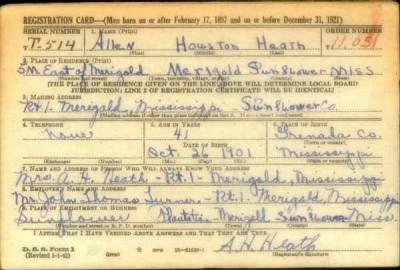 REGISTRATION CARD—(Men born on or after February 17, 1897 and on or before December 31, 1921)
SERIAL NUMBER 1. NAME (Print) ORDER NUMBER
T-514 Allen Houston Heath 11,031
(First) (Middle) (Last)
2. PLACE OF RESIDENCE (Print)
5M East of Merigold Merigold Sunflower Miss
[THE PLACE OF RESIDENCE GIVEN ON THE LINE ABOVE WILL DETERMINE LOCAL BOARD
JURISDICTION; LINE 2 OF REGISTRATION CERTIFICATE WILL BE IDENTICAL]
3. MAILING ADDRESS
Rt.1- Merigold, Mississippi Sunflower Co.
4. TELEPHONE 5. AGE IN YEARS 6. PLACE OF BIRTH
None 41 Grenada Co.
DATE OF BIRTH
Oct. 26 1901 Mississippi
(Exchange) (Number) (Mo.) (Day) (Yr.) (State or country)
7. NAME AND ADDRESS OF PERSON WHO WILL ALWAYS KNOW YOUR ADDRESS
Mrs. A. H. Heath - Rt.1- Merigold, Mississippi
8. EMPLOYER'S NAME AND ADDRESS
Mr. John Thomas Turner - Rt.1- Merigold, Mississippi
9. PLACE OF EMPLOYMENT OR BUSINESS
Sunflower Plantation - Merigold Sunflower Miss.
I AFFIRM THAT I HAVE VERIFIED ABOVE ANSWERS AND THAT THEY ARE TRUE.
D. S. S. Form 1
(Revised 1-1-42) (over) A. H. Heath
(Registrant's signature)